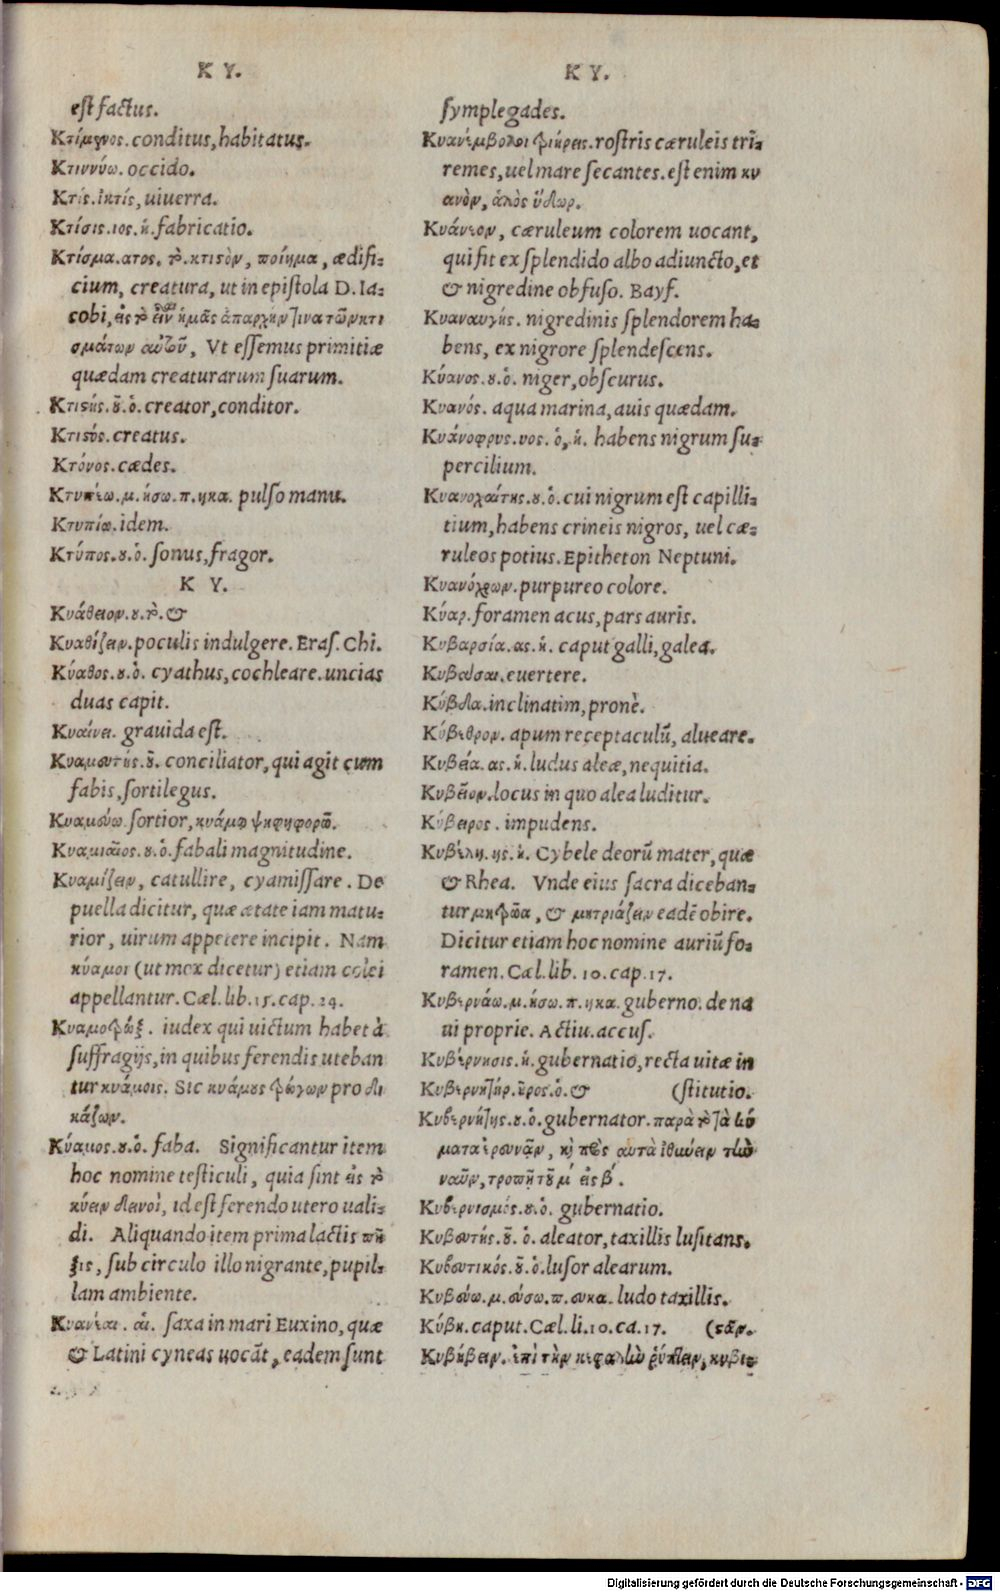 K Y.
est factus.
Κτίμενος. conditus, habitatus.
Κτιννύω. occido.
Κτίς. ἰκτίς, uiuerra.
Κτίσις. ιος. ἡ. fabricatio.
Κτίσμα. ατος. τὸ. κτιστὸν, ποίημα, ædifi-
cium, creatura, ut in epistola D. Ia-
cobi, εἰς τὸ εἶναι ἡμᾶς ἀπαρχήν τινα τῶν κτι
σμάτων αὑτοῦ, Vt essemus primitiæ
quædam creaturarum suarum.
Κτιστής. οῦ. ὁ. creator, conditor.
Κτιστός. creatus.
Κτόνος. cædes.
Κτυπέω. μ. ήσω. π. ηκα. pulso manu.
Κτυπίω. idem.
Κτύπος. ου. ὁ. sonus, fragor.
K Y.
Κυάθειον. ου. τὸ. &
Κυαθίζειν. poculis indulgere. Eras. Chi.
Κύαθος. ου. ὁ. cyathus, cochleare. uncias
duas capit.
Κυαίνει. grauida est.
Κυαμευτής. οῦ. conciliator, qui agit cum
fabis, sortilegus.
Κυαμεύω. sortior, κυάμῳ ψηφηφορῶ.
Κυαμιαῖος. ου. ὁ. fabali magnitudine.
Κυαμίζειν, catullire, cyamissare. De
puella dicitur, quæ ætate iam matu-
rior, uirum appetere incipit. Nam
κύαμοι (ut mox dicetur) etiam colei
appellantur. Cæl. lib. 15. cap. 24.
Κυαμοτρώξ. iudex qui uictum habet à
suffragijs, in quibus ferendis uteban
tur κυάμοις. Sic κυάμους τρώγων pro δι
κάζων.
Κύαμος. ου. ὁ. faba. Significantur item
hoc nomine testiculi, quia sint εἰς τὸ
κύειν δεινοὶ, id est ferendo utero uali-
di. Aliquando item prima lactis πῆ
ξις, sub circulo illo nigrante, pupil-
lam ambiente.
Κυανέαι. αἱ. saxa in mari Euxino, quæ
& Latini cyneas uocãt, eadem sunt
K Y.
symplegades.
Κυανέμβολοι τριήρεις. rostris cæruleis tri-
remes, uel mare secantes. est enim κυ
ανὸν, ἁλὸς ὕδωρ.
Κυάνεον, cæruleum colorem uocant,
qui fit ex splendido albo adiuncto, et
& nigredine obfuso. Bayf.
Κυαναυγής. nigredinis splendorem ha-
bens, ex nigrore splendescens.
Κύανος. ου. ὁ. niger, obscurus.
Κυανός. aqua marina, auis quædam.
Κυάνοφρυς. υος. ὁ, ἡ. habens nigrum su-
percilium.
Κυανοχαίτης. ου. ὁ. cui nigrum est capilli-
tium, habens crineis nigros, uel cæ-
ruleos potius. Epitheton Neptuni.
Κυανόχρων. purpureo colore.
Κύαρ. foramen acus, pars auris.
Κυβαρσία. ας. ἡ. caput galli, galea.
Κυβάσαι. euertere.
Κύβδα. inclinatim, pronè.
Κύβεθρον. apum receptaculũ, alueare.
Κυβεία. ας. ἡ. ludus aleæ, nequitia.
Κυβεῖον. locus in quo alea luditur.
Κύβειρος. impudens.
Κυβέλη. ης. ἡ. Cybele deorũ mater, quæ
& Rhea. Vnde eius sacra diceban-
tur μητρῶα, & μητριάζειν eadẽ obire.
Dicitur etiam hoc nomine auriũ fo-
ramen. Cæl. lib. 10. cap. 17.
Κυβερνάω. μ. ήσω. π. ηκα. guberno. de na
ui proprie. Actiu. accus.
Κυβέρνησις. ἡ. gubernatio, recta uitæ in
Κυβερνητήρ. ῆρος. ὁ. & (stitutio.
Κυβερνήτης. ου. ὁ. gubernator. παρὰ τὸ τὰ κύ
ματα ἐρευνᾷν, καὶ πῶς αὐτὰ ἰθύνειν τὴν
ναῦν, τροπῇ τοῦ μ εἰς β.
Κυβερνισμός. οῦ. ὁ. gubernatio.
Κυβευτής. οῦ. ὁ. aleator, taxillis lusitans.
Κυβευτικός. οῦ. ὁ. lusor alearum.
Κυβεύω. μ. εύσω. π. ευκα. ludo taxillis.
Κύβη. caput. Cæl. li. 10. ca. 17. (στᾷν.
Κυβήβειν. ἐπὶ τὴν κεφαλὴν ῥίπτειν, κυβι-
Digitalisierung gefördert durch die Deutsche Forschungsgemeinschaft - DFG